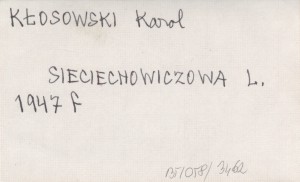 KŁOSOWSKI Karol
SIECIECHOWICZOWA L.
1947 f